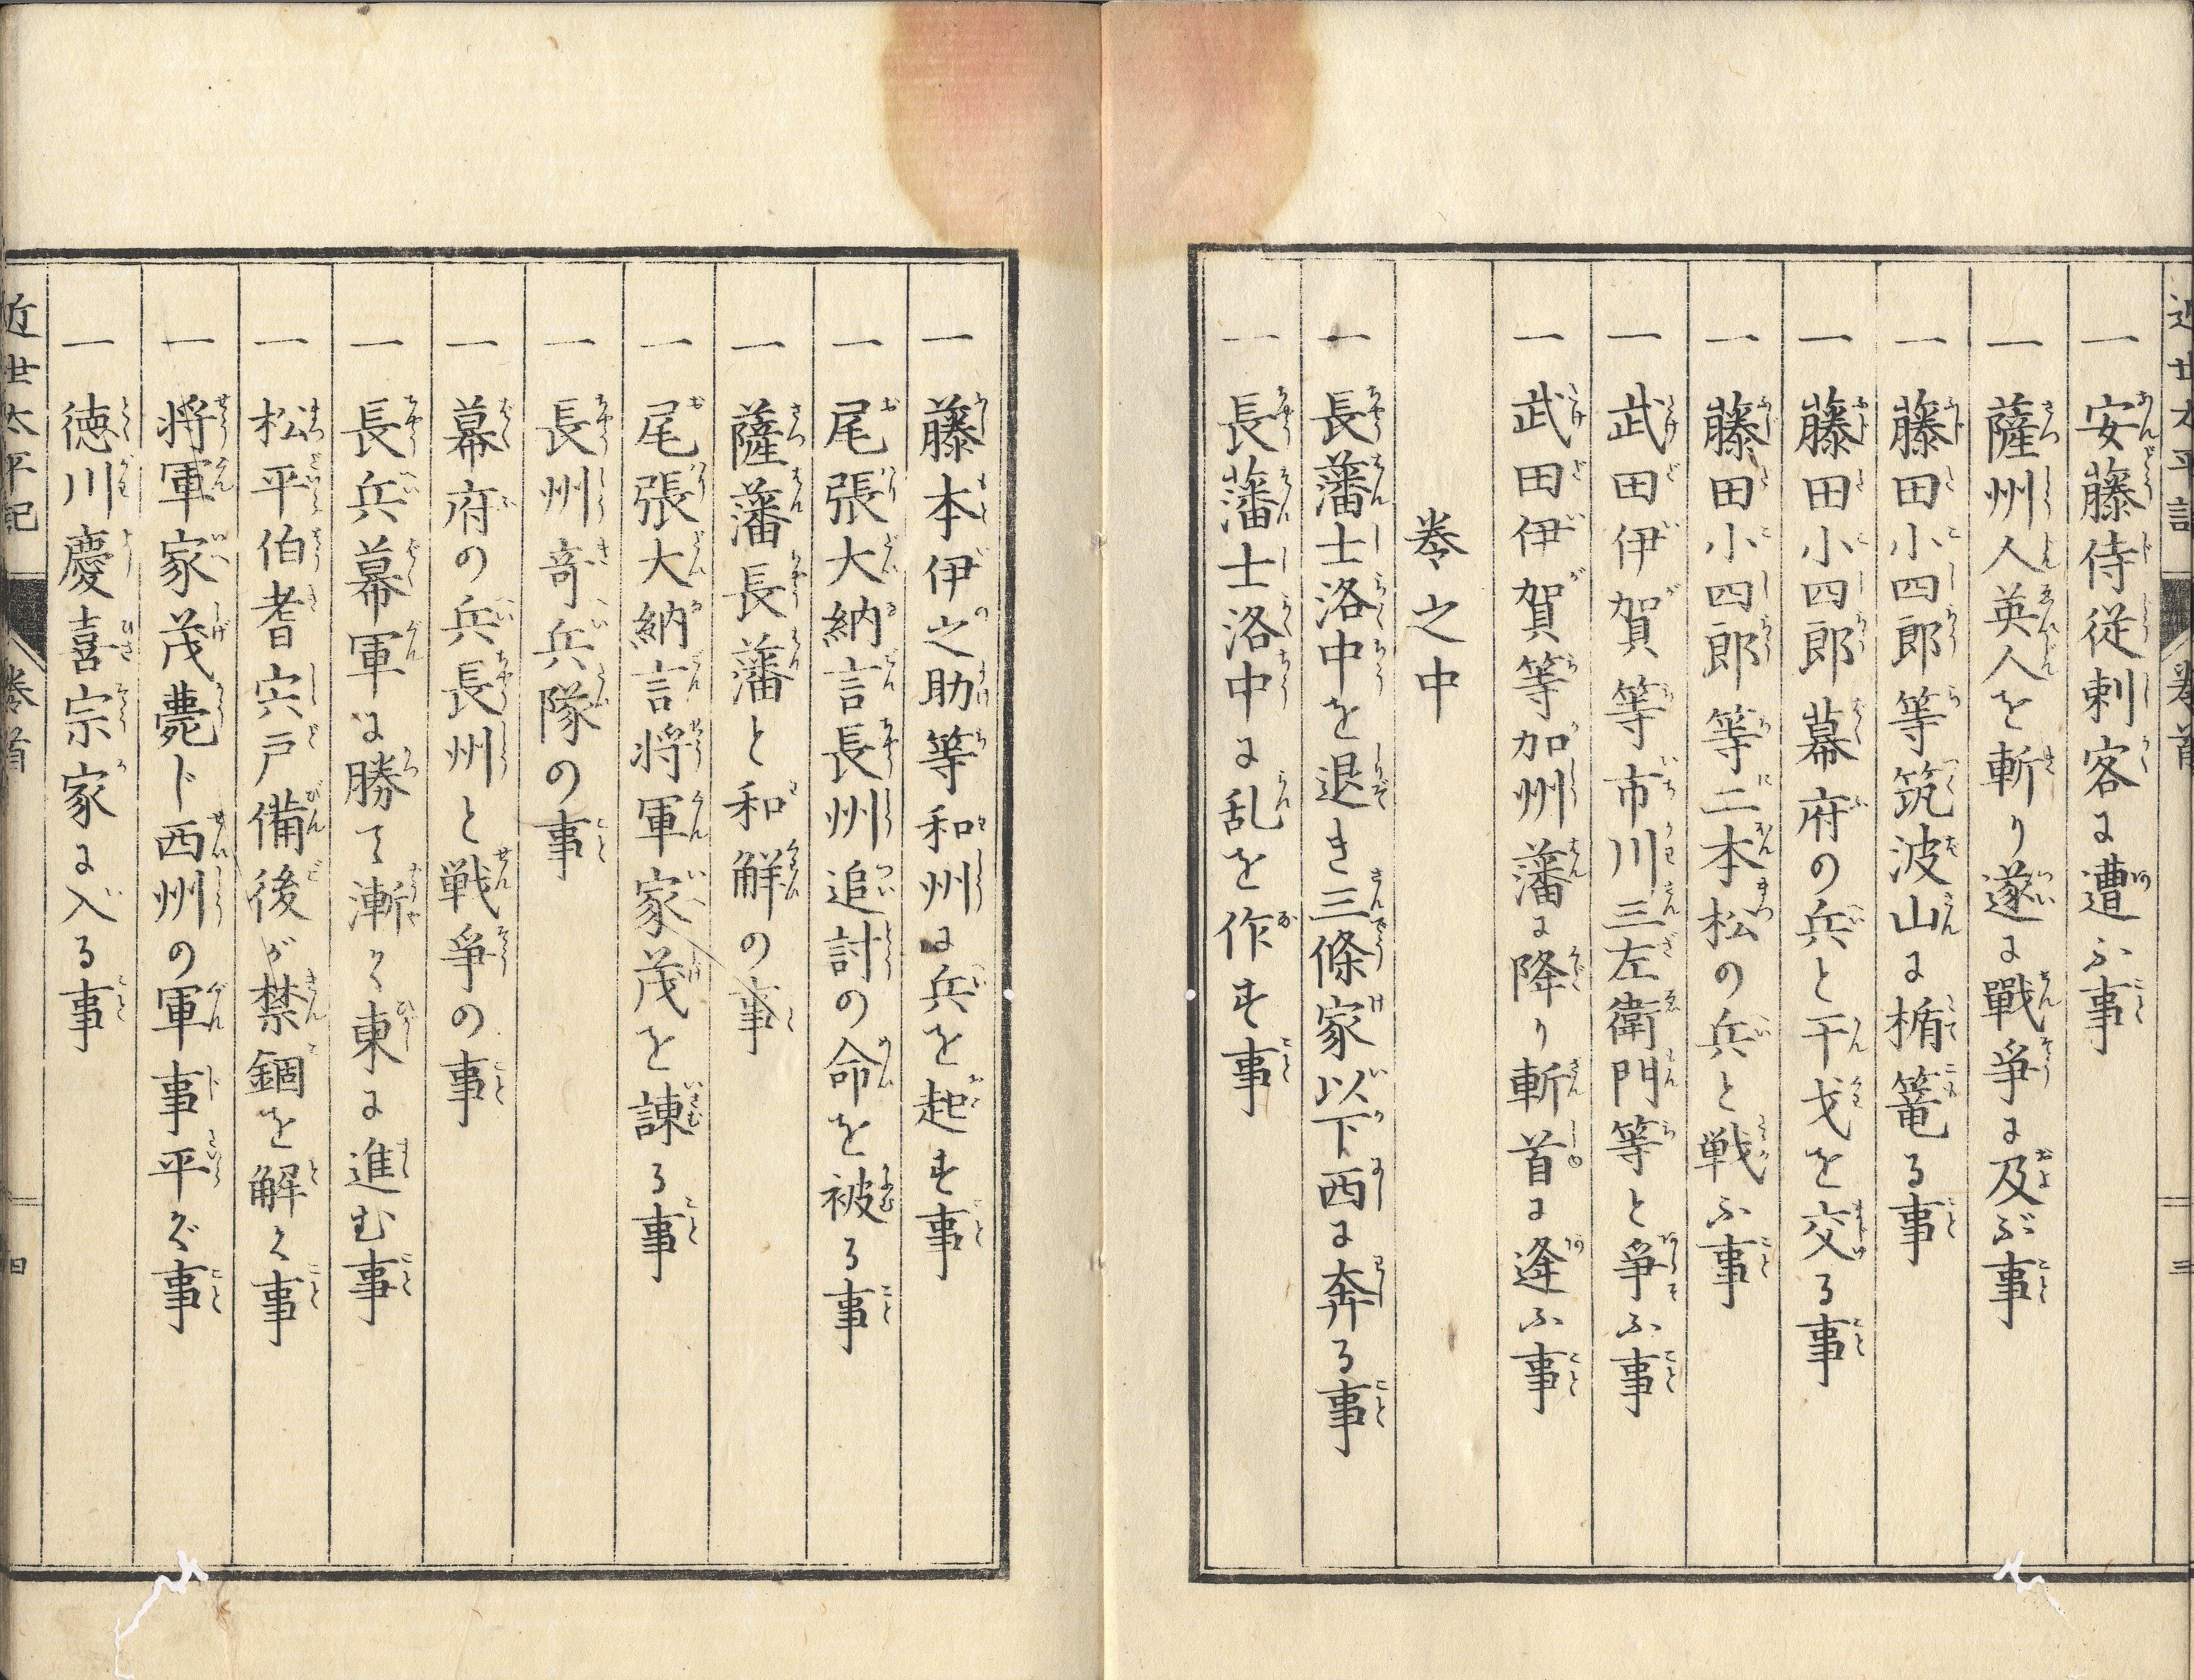 近世太平記 巻首 三
一 安藤侍従刺客に遭ふ事
一 薩州人英人を斬り遂に戰爭に及ぶ事
一 藤田小四郎等筑波山に楯篭る事
一 藤田小四郎幕府の兵と干戈を交る事
一 藤田小四郎等二本松の兵と戦ふ事
一 武田伊賀等市川三左衛門等と爭ふ事
一 武田伊賀等加州藩に降り斬首に逢ふ事
巻之中
一 長藩士洛中を退き三條家以下西に奔る事
一 長藩士洛中に乱を作す事
一 藤本伊之助等和州に兵を起す事
一 尾張大納言長州追討の命を被る事
一 薩藩長藩と和觧の事
一 尾張大納言将軍家茂を諌る事
一 長州竒兵隊の事
一 幕府の兵長州と戦爭の事
一 長兵幕軍に勝て漸く東に進む事
一 松平伯耆宍戸備後が禁錮を解く事
一 将軍家茂薨じ西州の軍事平ぐ事
一 徳川慶喜宗家に入る事
近世太平記 巻首 四